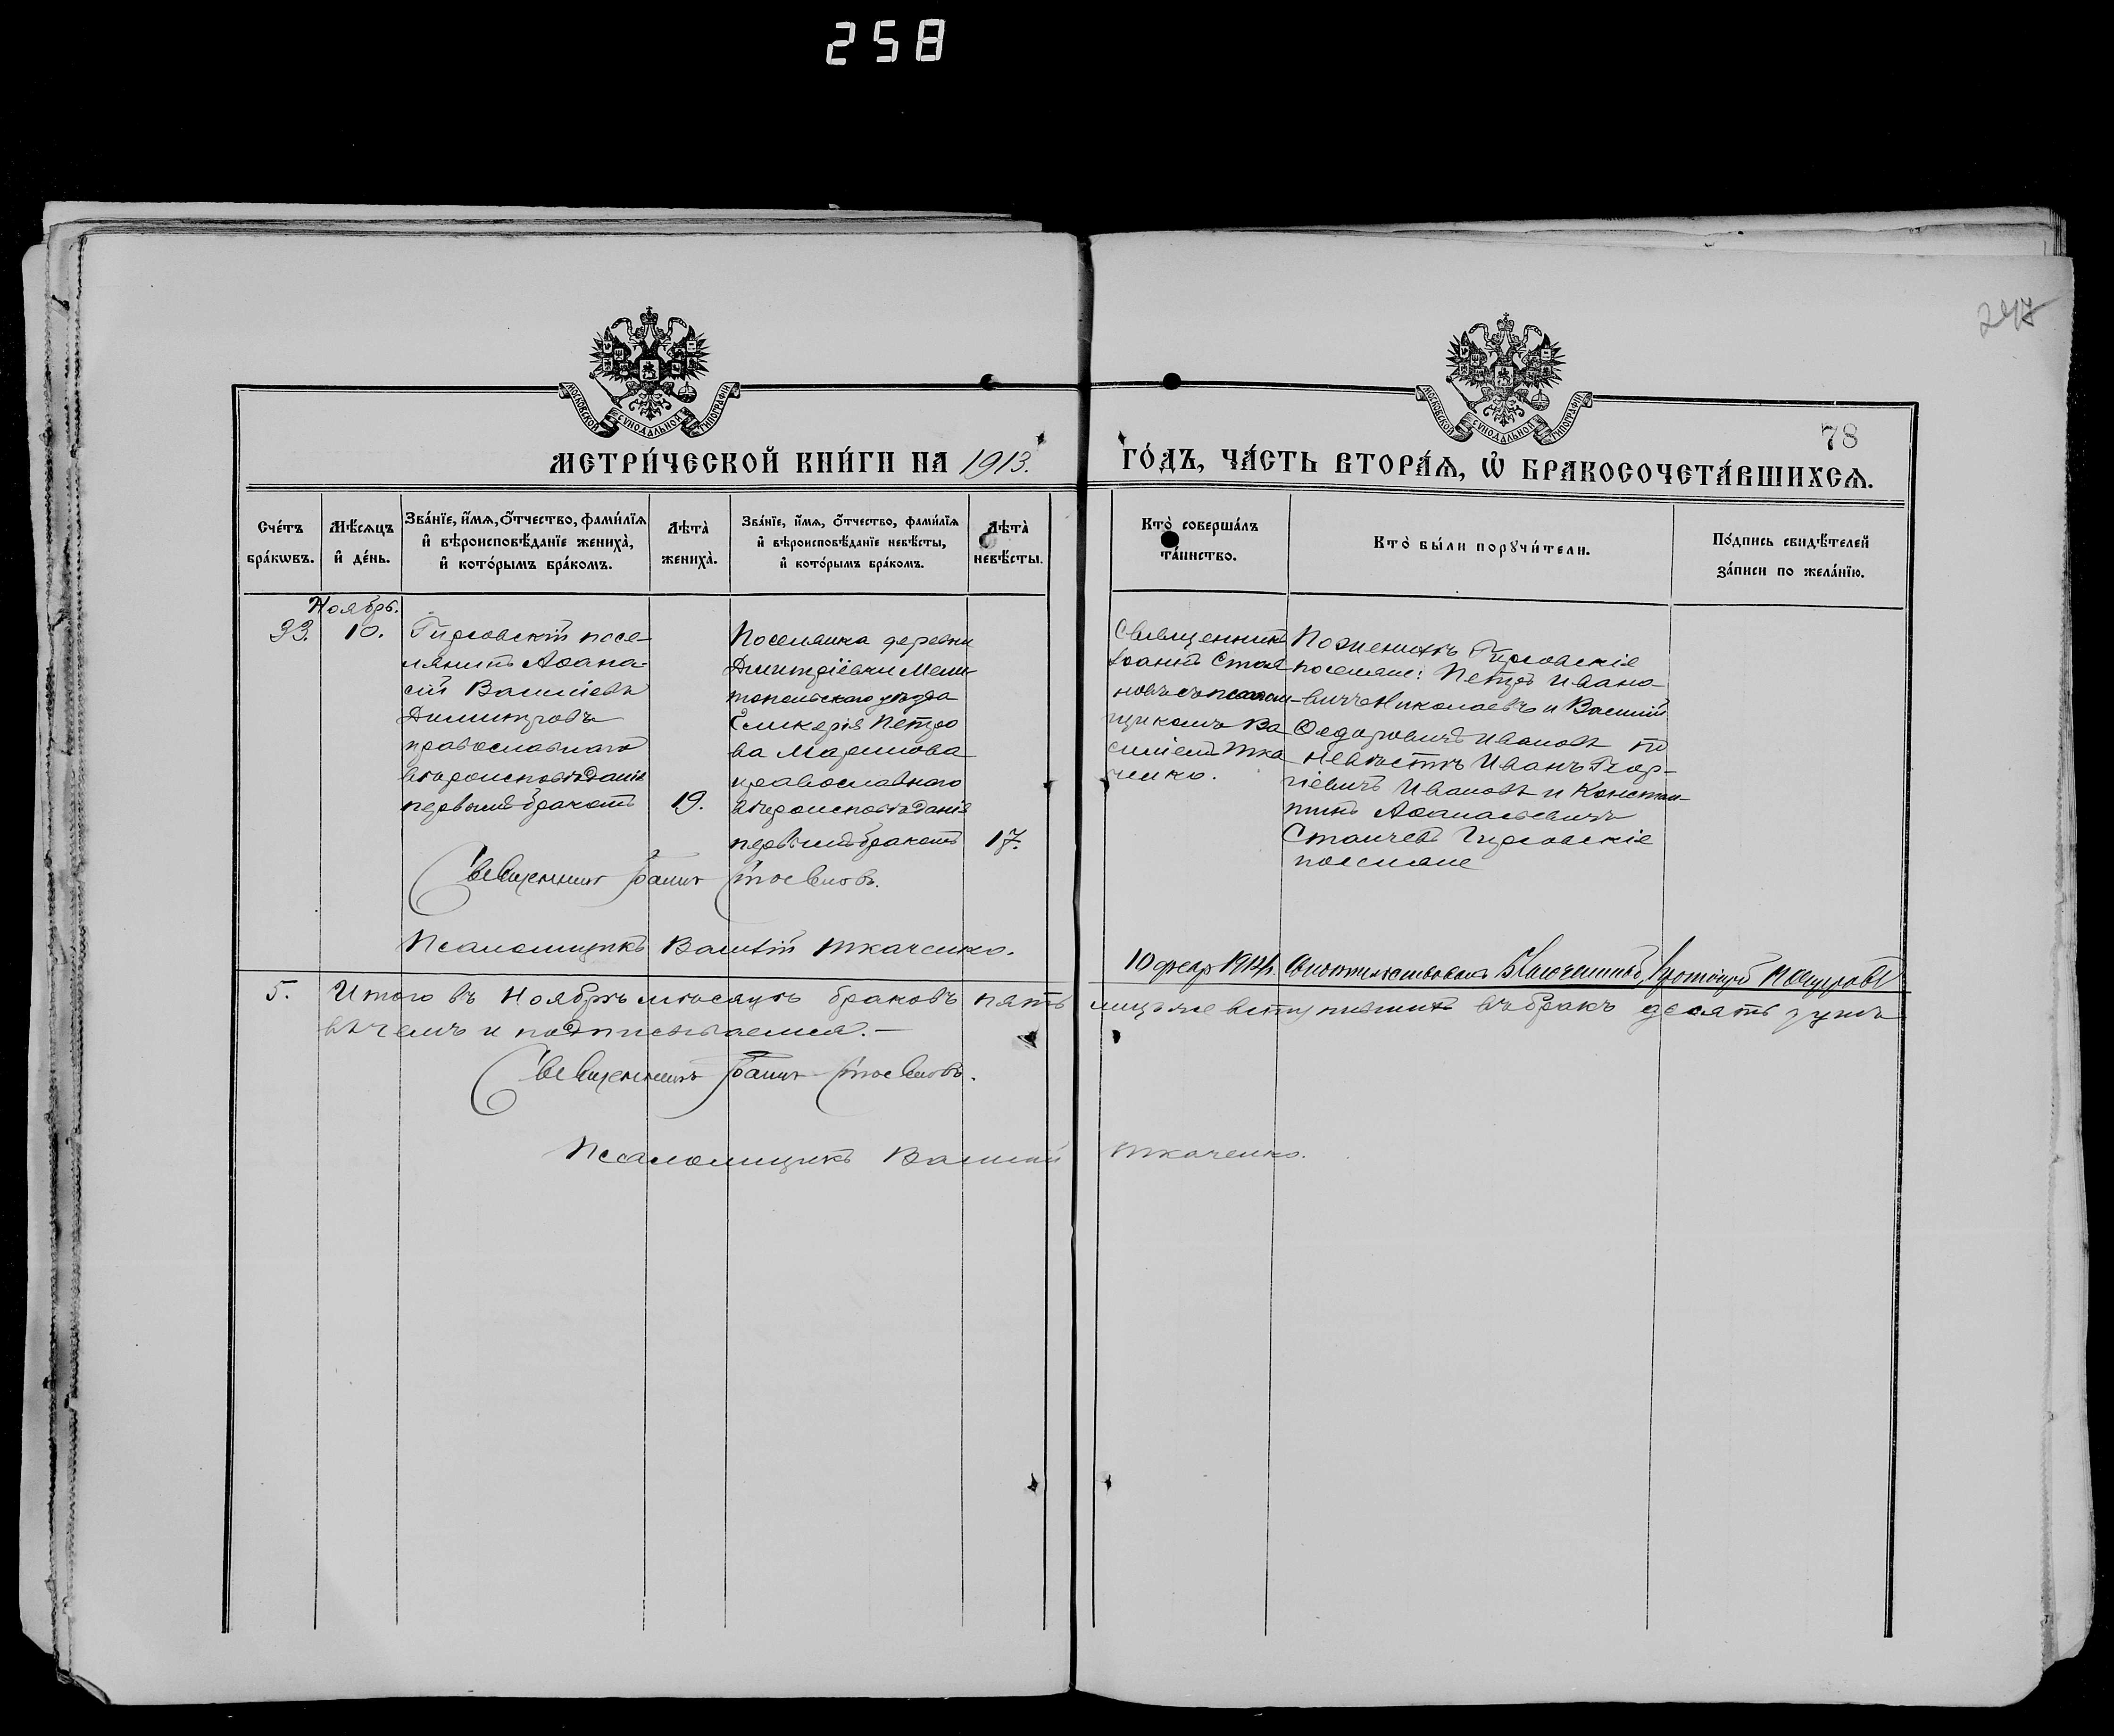 258
247
МОСКОВСКОЙ СѴНОДАЛЬНОЙ ТИПОГРАФІИ
МОСКОВСКОЙ СѴНОДАЛЬНОЙ ТИПОГРАФІИ
78
МЕТРИ́ЧЕСКОЙ КНИ́ГИ НА 1913.
ГО́ДЪ, ЧА́СТЬ ВТОРА́Ѧ, Ѿ БРАКОСОЧЕТА́ВШИХСѦ.
Сче́тъ
бра́кѡвъ.
Мѣ́сѧцъ
и҆ де́нь.
Зва́нїе, и҆́мѧ, ѻ҆́тчество, фами́лїѧ
и҆ вѣроисповѣ́данїе жениха̀,
и҆ кото́рымъ бра́комъ.
Лѣта̀
жениха̀.
Зва́нїе, и҆́мѧ, ѻ҆́тчество, фами́лїѧ
и҆ вѣроисповѣ́данїе невѣ́сты,
и҆ кото́рымъ бра́комъ.
Лѣта̀
невѣ́сты.
Кто̀ соверша́лъ
та́инство.
Кто̀ бы́ли порꙋчи́тели.
По́дпись свидѣ́телей
за́писи по жела́нїю.
Ноябрь.
33.
10.
Гирсовскій посе-
лянинъ Аѳана-
сій Василіевъ
Димитровъ
православнаго
вѣроисповѣданія
первымъ бракомъ
19.
Поселянка деревни
Дмитріевки Мели-
топольскаго уѣзда
Гликерія Петро
ва Маринова
православнаго
вѣроисповѣданія
первымъ бракомъ
17.
Священникъ
Іоаннъ Стоя
новъ съ псалом-
щикомъ Ва
силіемъ Тка
ченко.
По женихѣ Гирсовскіе
поселяне: Петръ Ивано-
вичъ Николаевъ и Василій
Ѳедоровичъ Ивановъ по
невѣстѣ Иванъ Геор-
гіевичъ Ивановъ и Констан-
тинъ Аѳанасьевичъ
Станчевъ Гирсовскіе
поселяне
Священникъ Іоаннъ Стояновъ.
Псаломщикъ Василій Ткаченко.
10 февр 1914 г. Свидѣтельствовалъ Благочинный, Протоіерей
5. Итого въ Ноябрѣ мѣсяцѣ браковъ пять лицъ же вступившихъ въ бракъ десять душъ
въ чемъ и подписываемся.—
Священникъ Іоаннъ Стояновъ.
Псаломщикъ Василій Ткаченко.